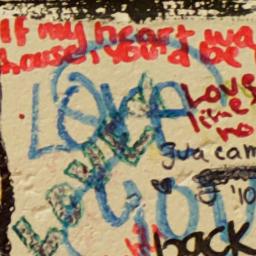 If my heart wa
house, you'd be
LOVE
LOVE
Love
like
no
guacam
YOU
'10
back